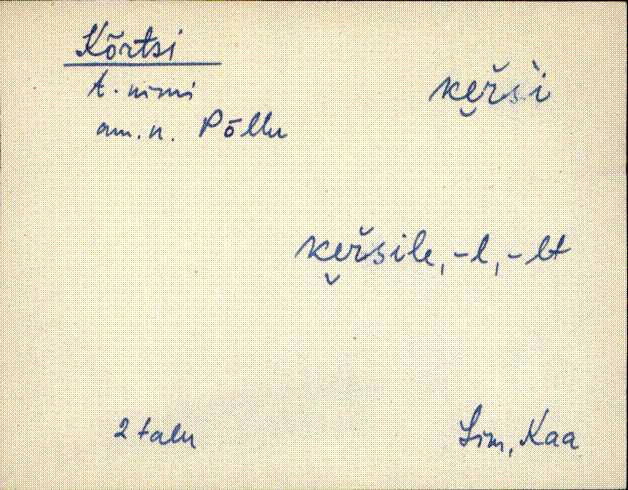 Kõrtsi
t. nimi
am. n. Põllu
ke̬ŕši
ke̬ŕsile, -l, -lt
2 talu
Jäm, Kaa